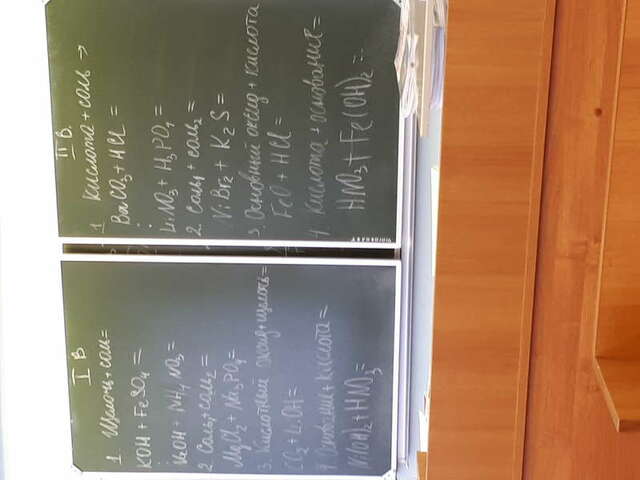 I В
1. Щелочь + соль =
KOH + FeSO4 =
:
NaOH + NH4NO3 =
2. Соль1 + соль2 =
MgCl2 + Na3PO4 =
3. Кислотный оксид + щелочь =
CO2 + LiOH =
4. Основание + кислота =
Ni(OH)2 + HNO3 =
II В.
1. Кислота + соль →
BaCO3 + HCl =
:
LiNO3 + H3PO4 =
2. Соль1 + соль2 =
NiBr2 + K2S =
3. Основный оксид + кислота
FeO + HCl =
4. Кислота + основание =
HNO3 + Fe(OH)2 =